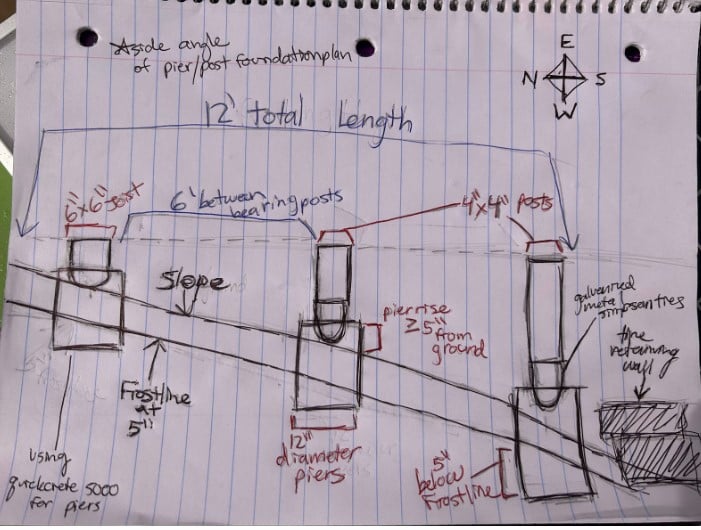 A side angle
of pier/post foundation plan
E
N S
W
12' total Length
6"x6" Joist
6' between
bearing posts
4"x4" posts
Slope
pier rise
≥5" from
ground
galvanized
metal
simpson ties
tire
retaining
wall
Frostline
at
5"
12"
diameter
piers
5"
below
Frostline
using
quickcrete 5000
for piers